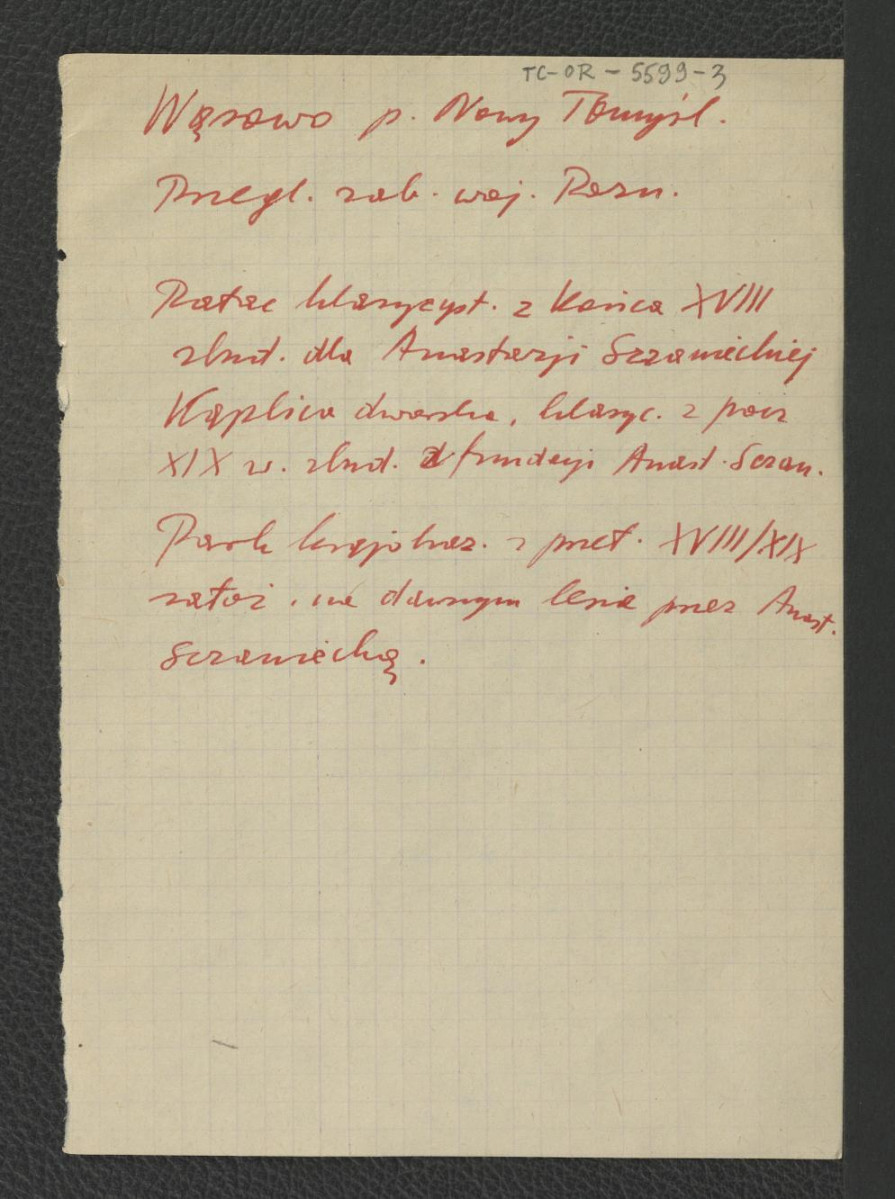 TC-OR-5599-3
Wąsowo p. Nowy Tomyśl.
Przegl. zab. woj. Pozn.
Pałac klasycyst. z końca XVIII
zbud. dla Anastazji Sczanieckiej
Kaplica dworska, klasyc. z pocz
XIX w. zbud. z fundacji Anast. Sczan.
Park krajobraz. z przeł. XVIII/XIX
założ. na dawnym lesie przez Anast.
Sczaniecką.